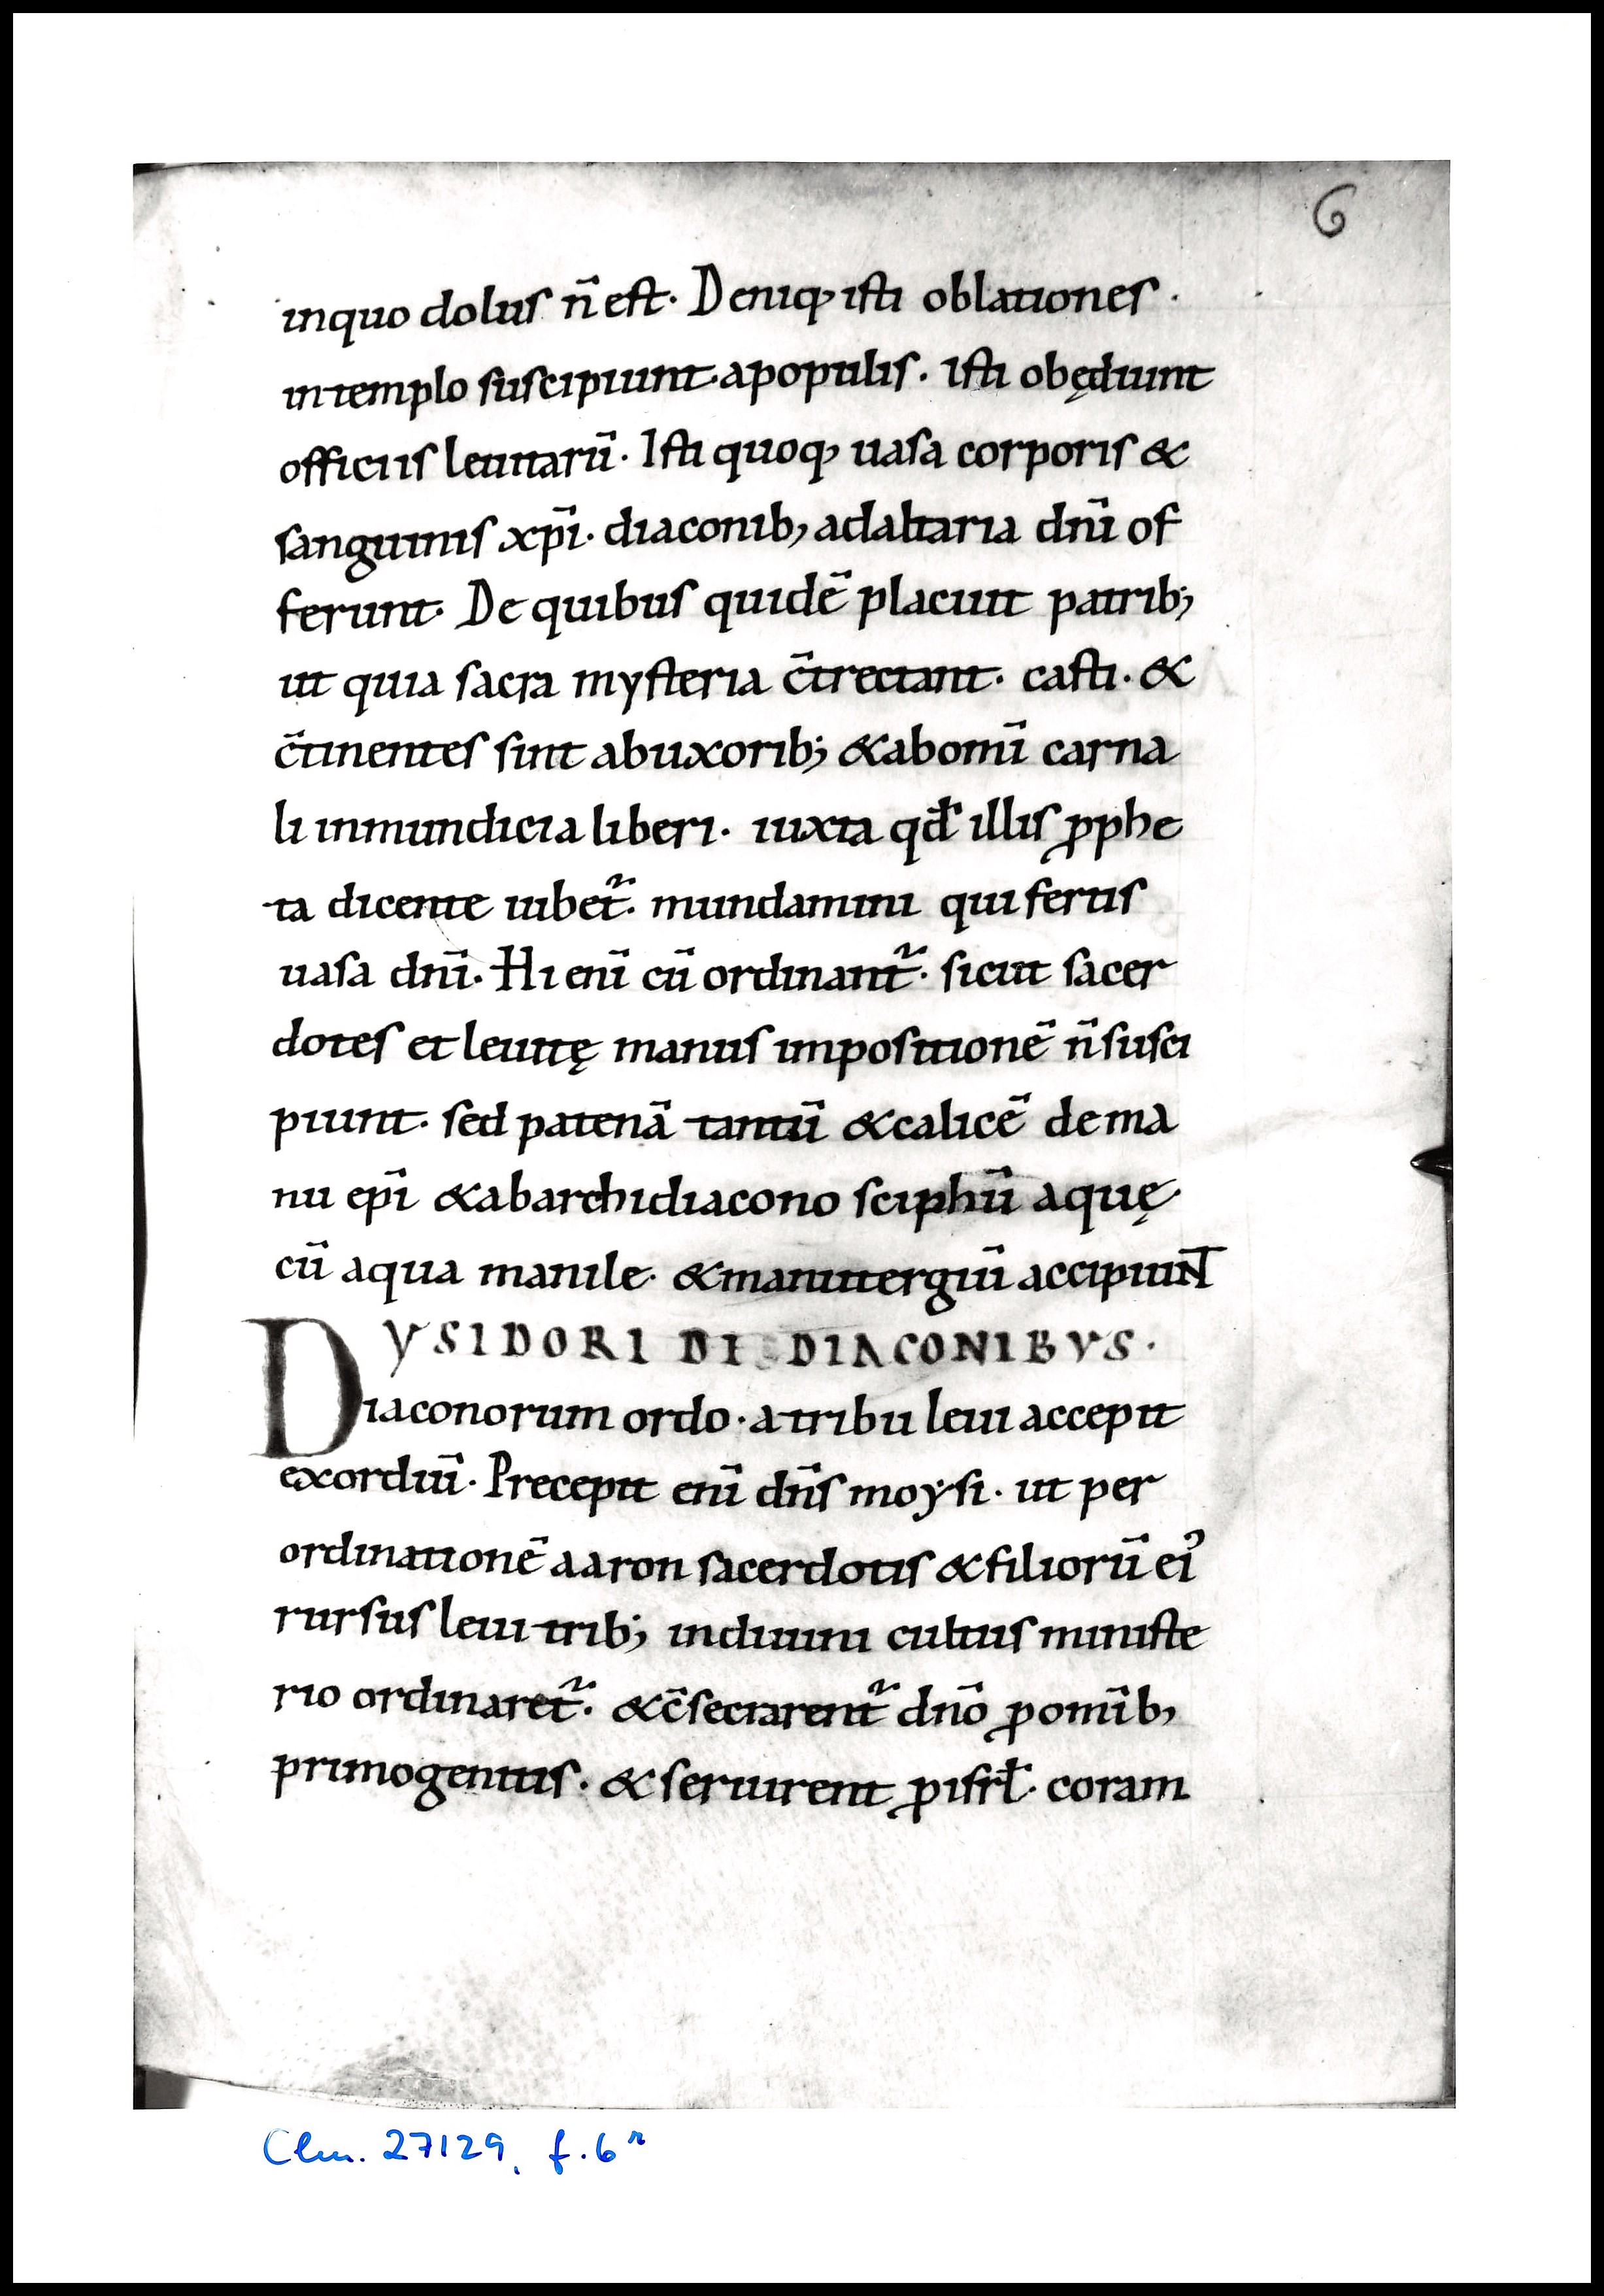 6
inquo dolus n̄ est· Deniq; isti oblationes·
intemplo suscipiunt· apopulis· isti obędiunt
officiis leuitarū· Isti quoq; uasa corporis &
sanguinis xp̄i· diaconib; adaltaria dn̄i of
ferunt· De quibus quidē placuit patrib;
ut quia sacra mysteria c̄trectant· casti· &
c̄tinentes sint abuxorib; &abomī carna
li inmundicia liberi· iuxta qđ illis ꝓphe
ta dicente iubet᷑· mundamini qui fertis
uasa dn̄i· Hi enī cū ordinant᷑· sicut sacer
dotes et leuitę manus impositionē n̄ susci
piunt· sed patenā tantū &calicē dema
nu ep̄i &abarchidiacono sciphū aquę·
cū aqua manile· &manutergiū accipiunt
YSIDORI DE DIACONIBVS·
Diaconorum ordo· atribu leui accepit
exordiū· Precepit enī dn̄s moẏsi· ut per
ordinationē aaron sacerdotis &filiorū ei᾽
rursus leui trib; indiuini cultus ministe
rio ordinaret᷑· &c̄secrarent᷑ dn̄o ꝓomīb;
primogenitis· &seruirent ꝓisrł· coram
Clm. 27129, f. 6ʳ